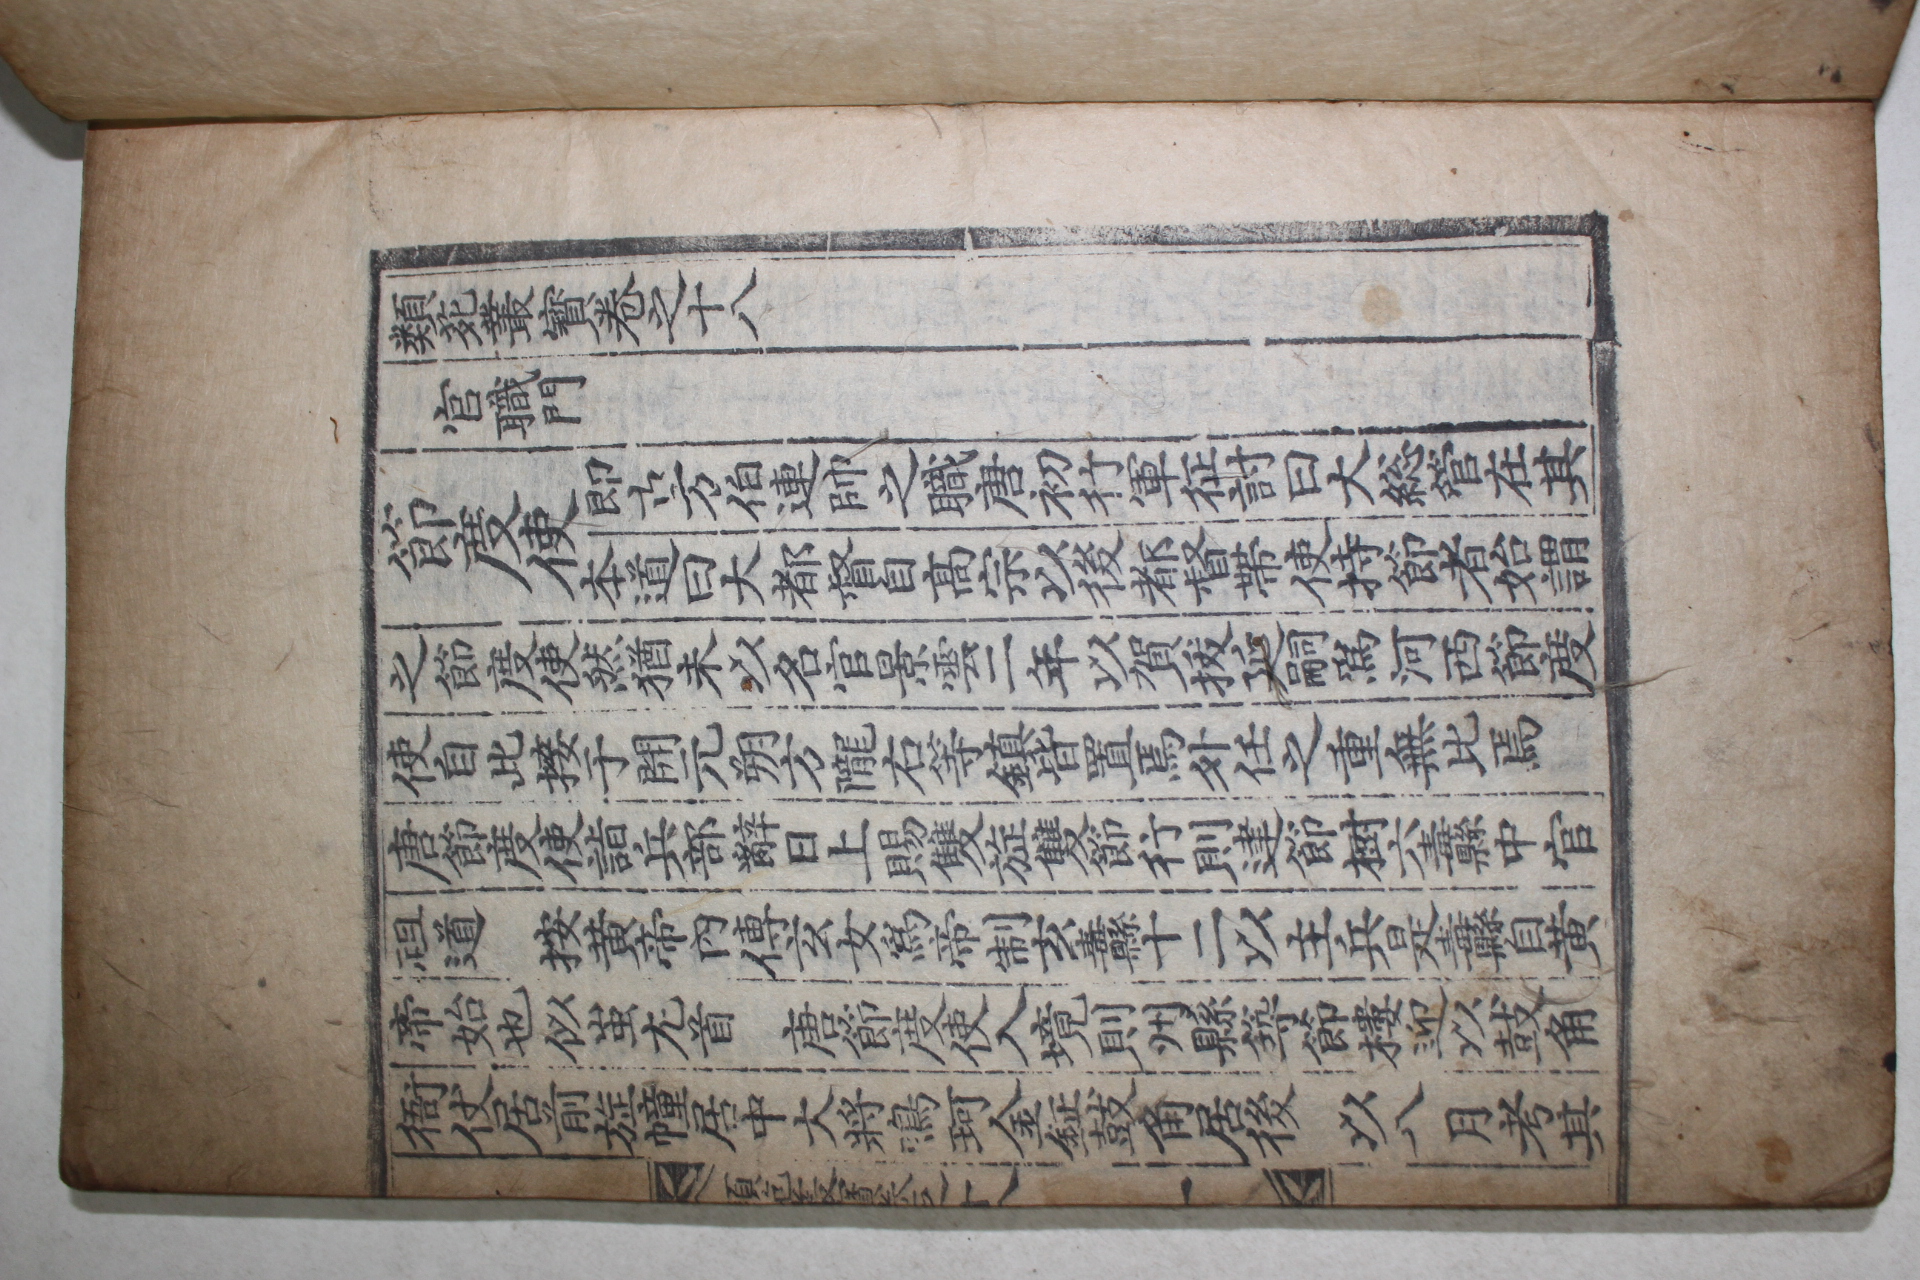 類苑叢寶卷之十八
官職門
節度使
即古方伯連帥之職唐初行軍征討曰大総管在其
本道曰大都督自高宗以後都督帶使持節者始謂
之節度使然猶未以名官景雲二年以賀拔延嗣爲河西節度
使自此接于開元朔方隴右等鎮皆置焉外任之重無比焉
唐節度使詣兵部辭日上賜雙旌雙節行則建節樹六纛中官
祖道 按黃帝內傳玄女爲帝制玄纛十二以主兵是纛自黃
帝始也似蚩尤首 唐節度使入境則州縣築節樓迎以鼓角
衙仗居前旌幢居中大將鳴珂金鉦鼓角居後 以八月考其
類苑叢寶卷之十八 一